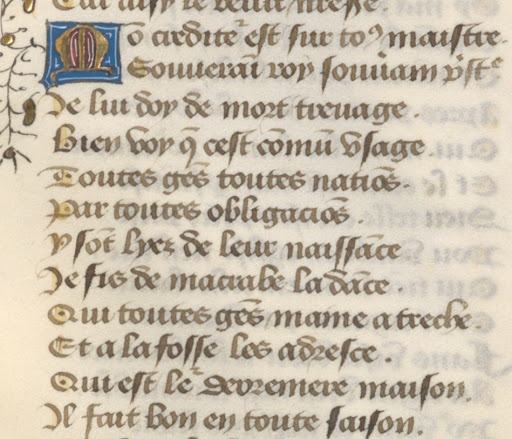 Mõ crediteˀ est sur toꝰ maistre.
Souueraĩ roy souuãin p̃stᵉ
Je lui doy de mort treuage.
Bien voy q̃ cest cõmũ vsage.
Toutes gẽs toutes natiõs.
Par toutes obligaciõs.
y sõt lyez de leur naissãce
Je fis de macabre la dãce.
Qui toutes gẽs maine a treche.
Et a la fosse les adresce.
Qui est leˀ derreniere maison.
Il fait bon en toute saison.